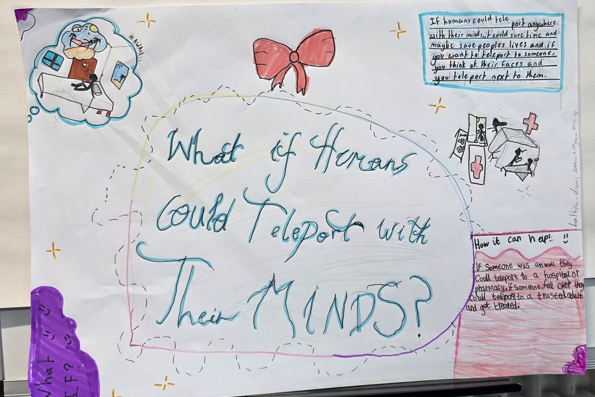 HAWAII
If humans could tele port anywhere
with their minds, it could save time and
maybe save peoples lives and if
you want to teleport to someone,
you think of their faces and
you teleport next to them.
What if Humans
Could Teleport with
Their MINDS?
How it can help!
If someone was unwell they
could teleport to a hospital or
pharmacy, if someone fell over they
could teleport to a trusted adult
and get treated.
What
IF?